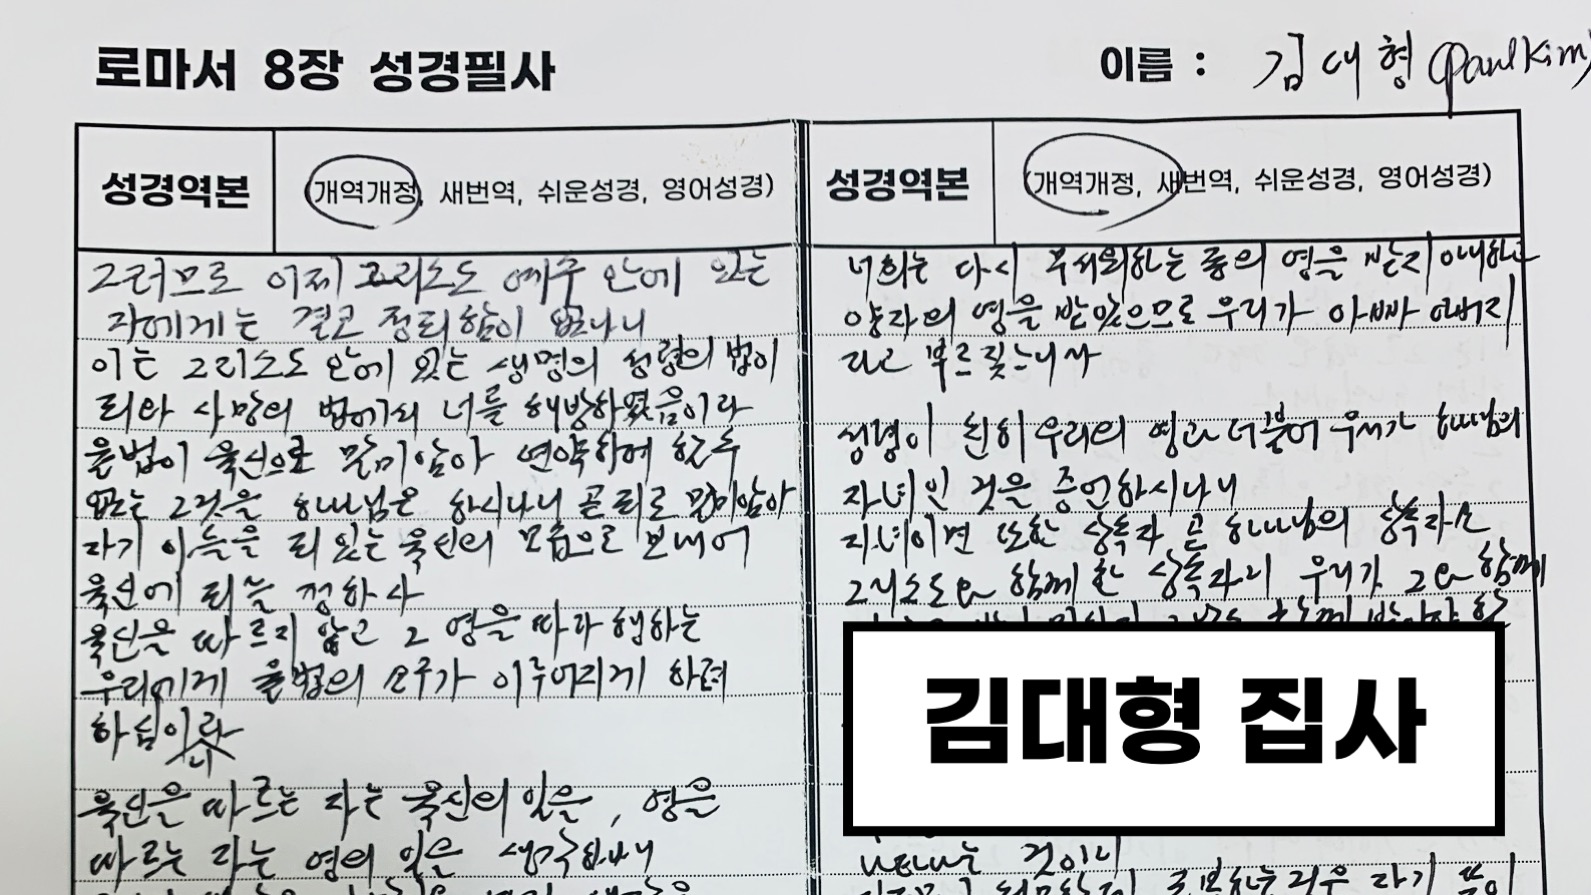 로마서 8장 성경필사
이름 : 김대형 (Paul Kim)
성경역본 (개역개정, 새번역, 쉬운성경, 영어성경)
그러므로 이제 그리스도 예수 안에 있는
자에게는 결코 정죄함이 없나니
이는 그리스도 안에 있는 생명의 성령의 법이
죄와 사망의 법에서 너를 해방하였음이라
율법이 육신으로 말미암아 연약하여 할 수
없는 그것을 하나님은 하시나니 곧 죄로 말미암아
자기 아들을 죄 있는 육신의 모습으로 보내어
육신에 죄를 정하사
육신을 따르지 않고 그 영을 따라 행하는
우리에게 율법의 요구가 이루어지게 하려
하심이라
니
육신을 따르는 자는 육신의 일을, 영을
따르는 자는 영의 일을 생각하나니
성경역본 (개역개정, 새번역, 쉬운성경, 영어성경)
너희는 다시 무서워하는 종의 영을 받지 아니하고
양자의 영을 받았으므로 우리가 아빠 아버지
라고 부르짖느니라
성령이 친히 우리의 영과 더불어 우리가 하나님의
자녀인 것을 증언하시나니
자녀이면 또한 상속자 곧 하나님의 상속자요
그리스도와 함께 한 상속자니 우리가 그와 함께
김대형 집사
나타나는 것이니